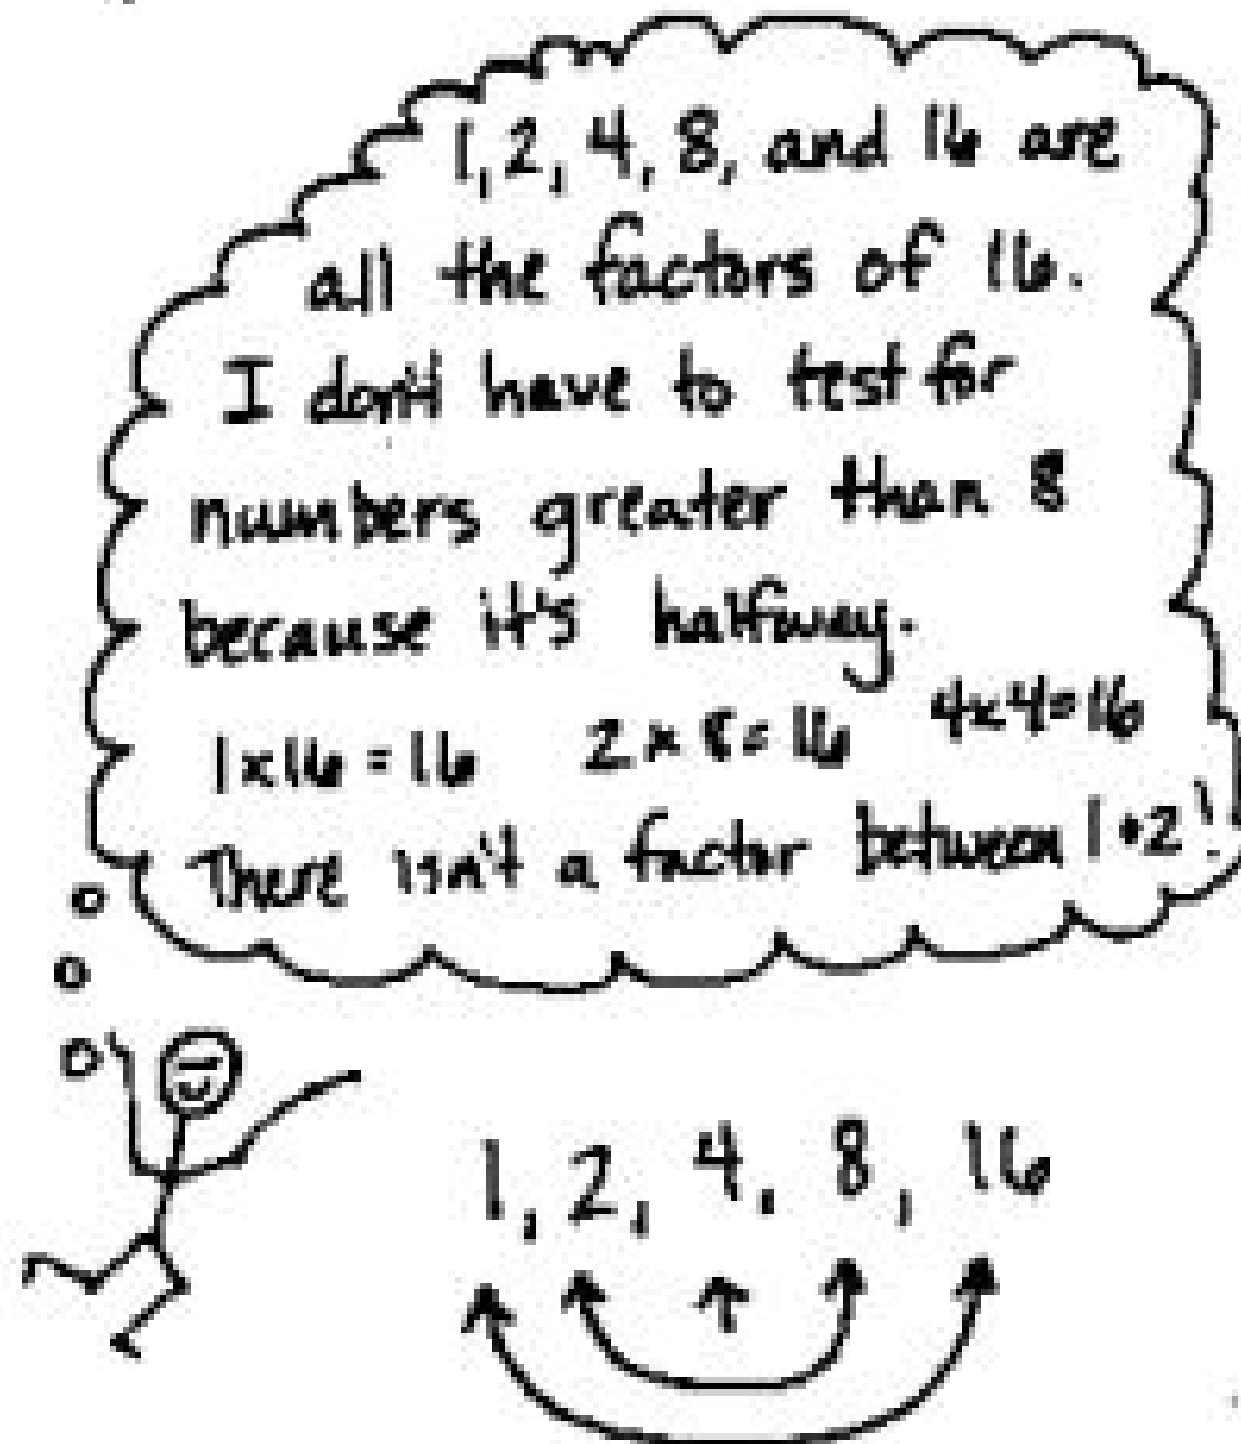 1, 2, 4, 8, and 16 are
all the factors of 16.
I don't have to test for
numbers greater than 8
because it's halfway.
1 x 16 = 16 2 x 8 = 16 4 x 4 = 16
There isn't a factor between 1 + 2!
1, 2, 4, 8, 16